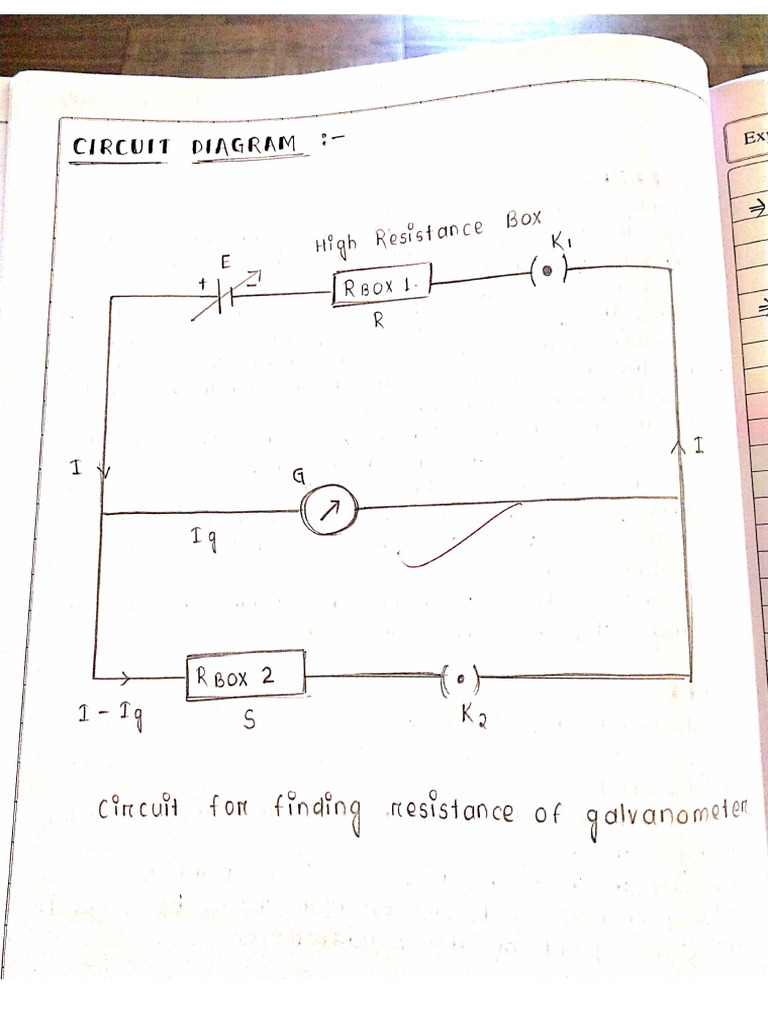 CIRCUIT DIAGRAM :-
Exp
High Resistance Box
K1
E
+ -
R BOX 1.
R
I
I
G
Ig
R BOX 2
I - Ig
S
K2
Circuit for finding resistance of galvanometer